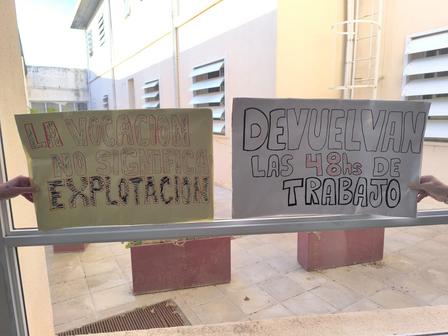 LA VOCACION
NO SIGNIFICA
EXPLOTACION
DEVUELVAN
LAS 48hs DE
TRABAJO